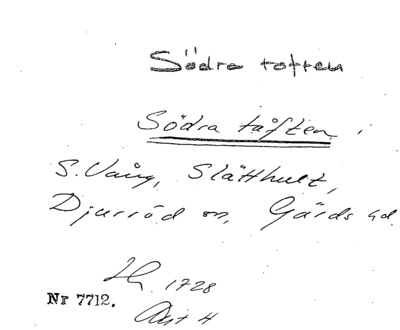 Södra toften
Södra tåften i
S. Vång, Slätthult,
Djurröd sn, Gärds hd.
1728
Nr 7712.
Akt 4